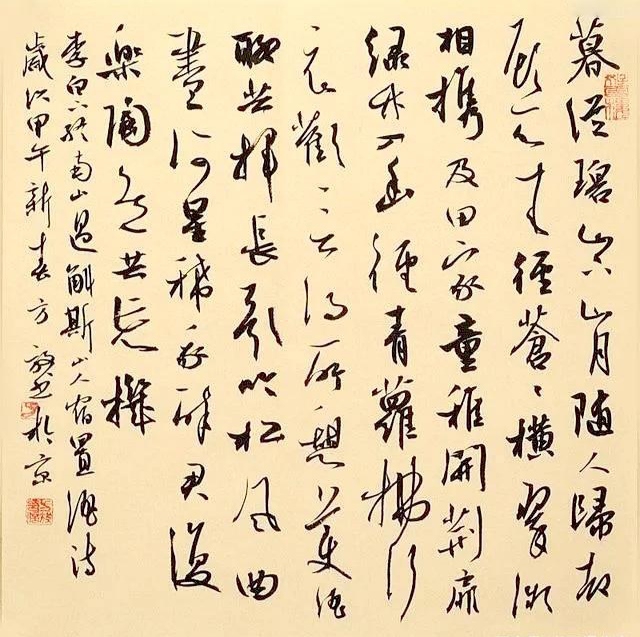 暮從碧山下山月隨人歸却
顧所來徑蒼〻橫翠微
相攜及田家童稚開荊扉
緑竹入幽徑青蘿拂行
衣歡言得所憩美酒
聊共揮長歌吟松風曲
盡河星稀我醉君復
樂陶然共忘機
李白下終南山過斛斯山人宿置酒詩
歲次甲午新春方書於京